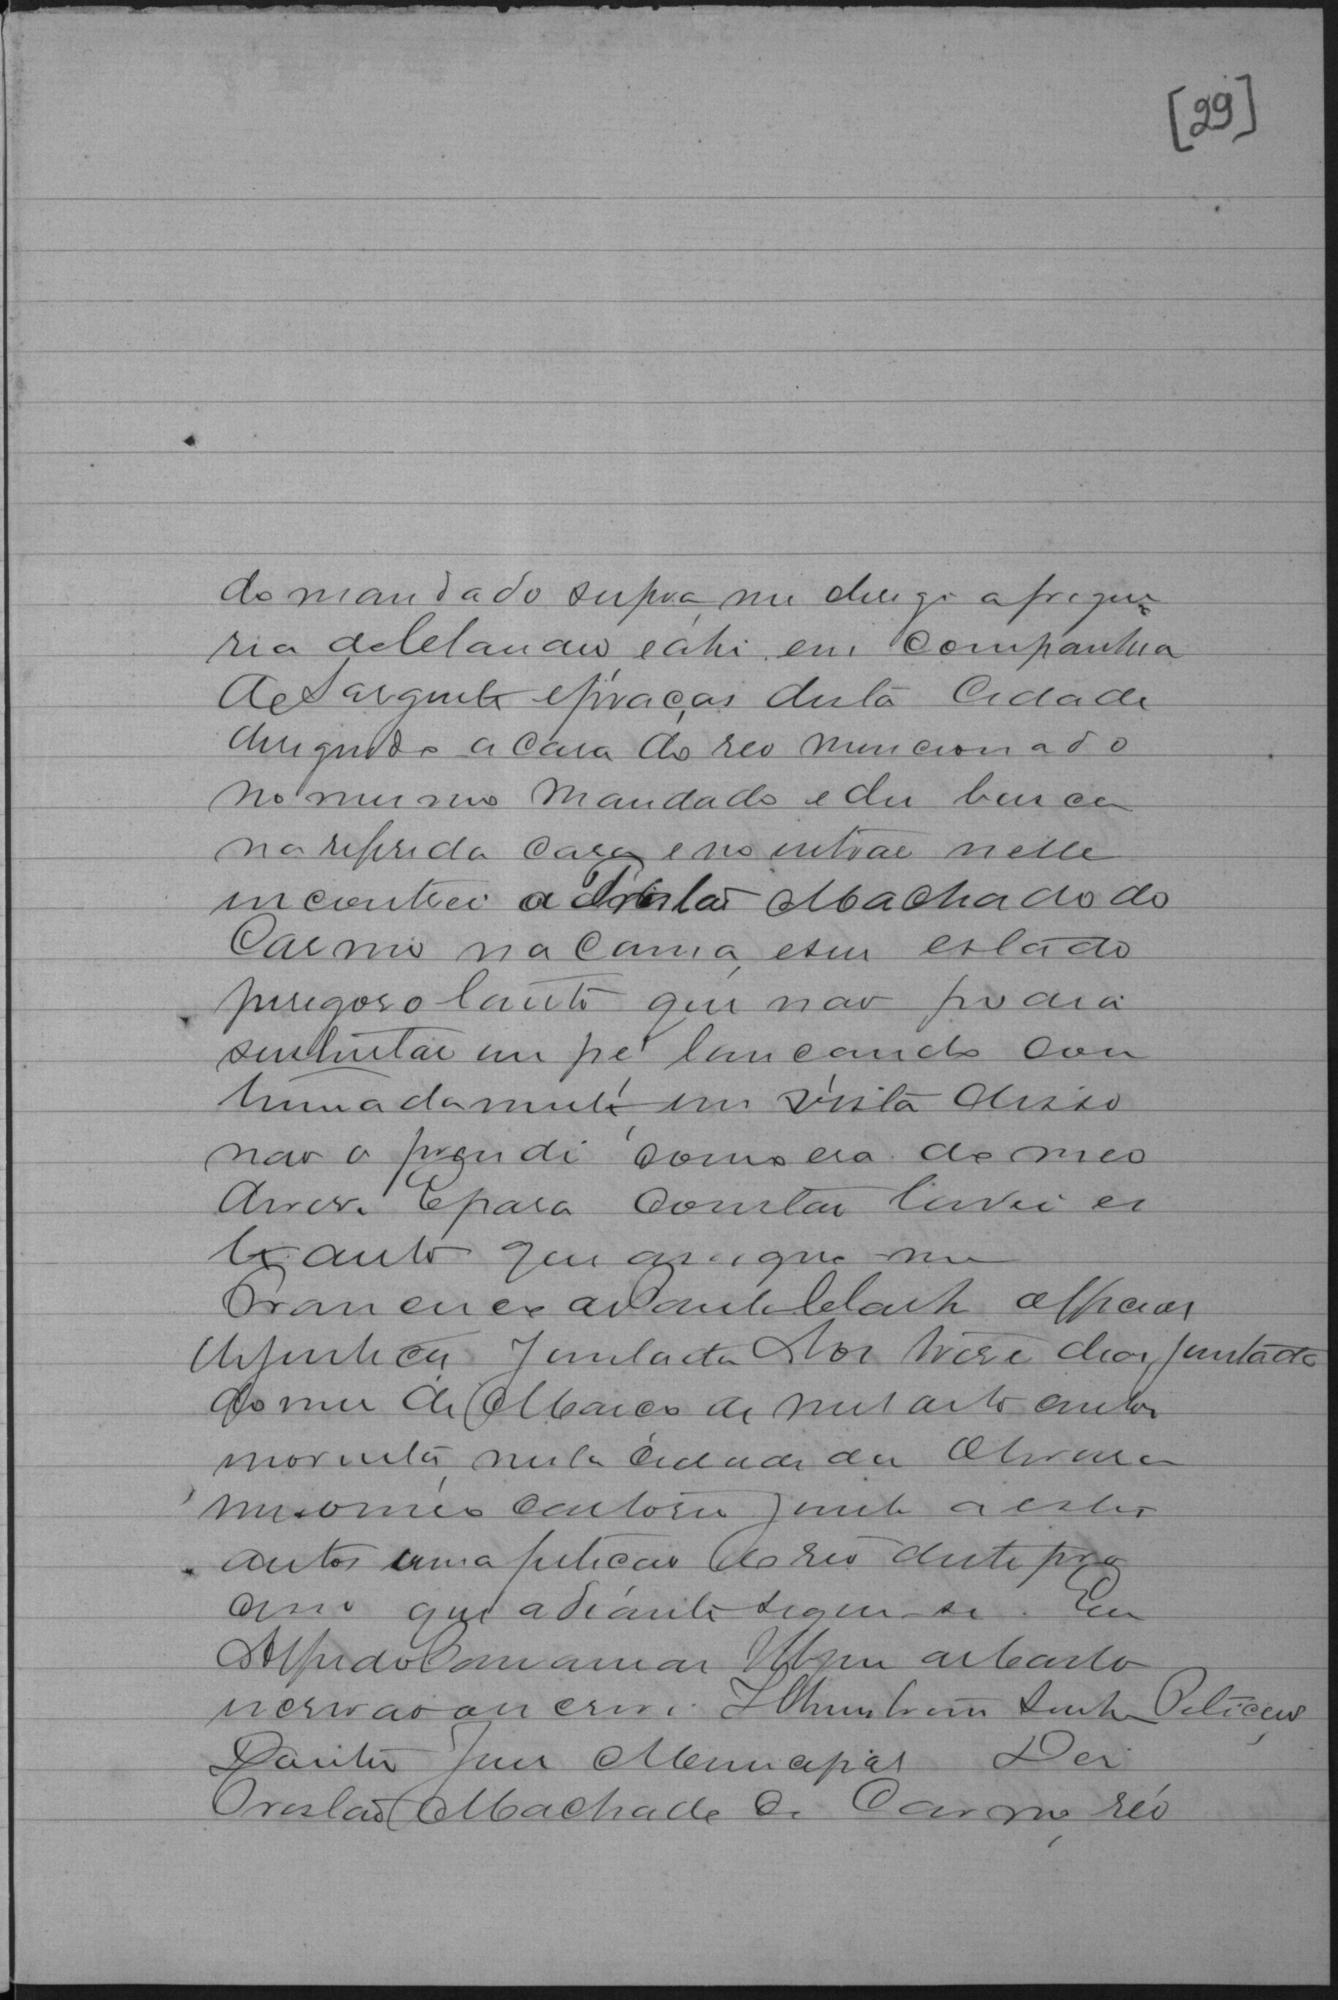 [29]
do mandado supra me derigi a fregue
sia de e ahi em companhia
de Sargento e praças desta Cidade
derigindo a casa do reo mencionado
no mesmo mandado e dei busca
na referida casa e no entrar nelle
incontrei a Tristão Machado do
Carmo na cama, e em estado
perigoso tanto que não podia
sustentar em pé lançando con
tinuadamente, em vista disso
não o prendi como era do meo
dever. E para constar lavrei es
te auto que assigno-me
Francisco official
de justiça Juntada Aos treze dias juntada
do mez de Março de mil oito centos
e noventa, nesta Cidade da
em o meo Cartorio junto a estes
autos uma petição do reo deste pro
cesso que adiante segue-se. Eu
Alfredo
escrivão o escrevi. Illustrissimo Senhor Petição
Doutor Juiz Municipal Diz
Tristão Machado do Carmo, réo